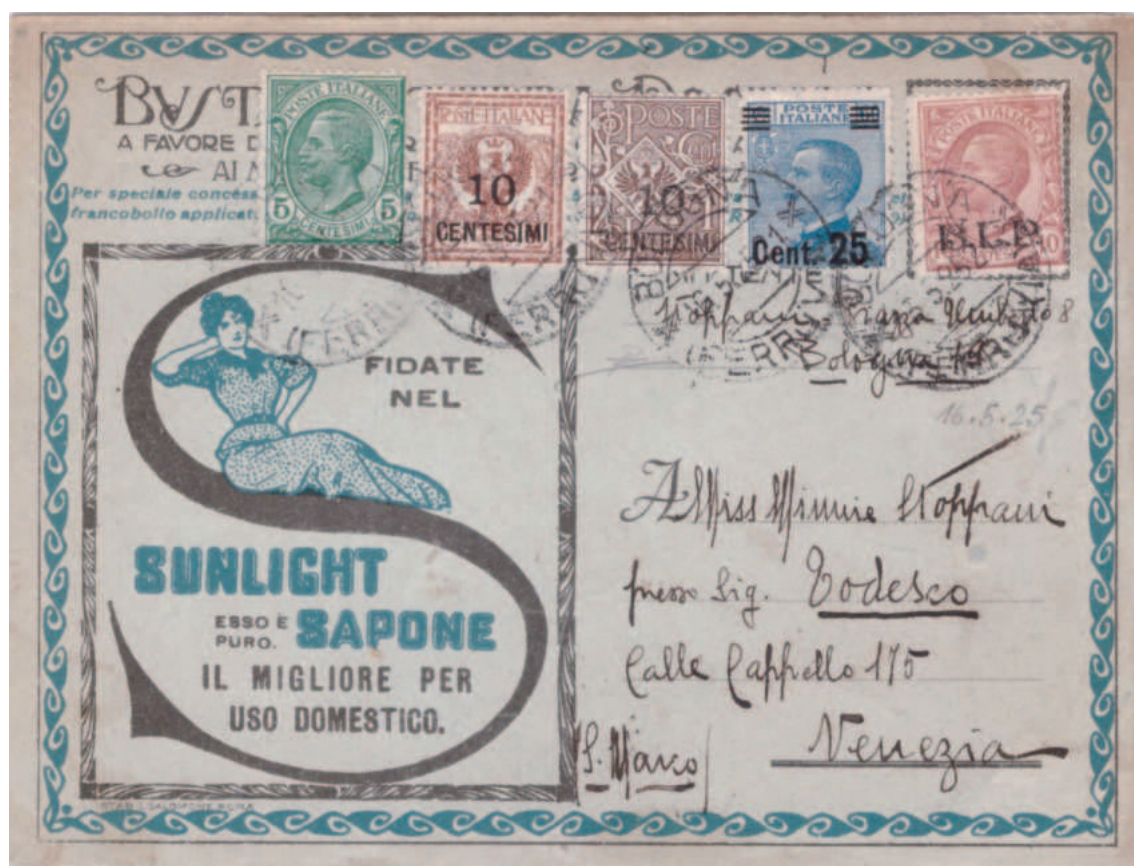 BVST
A FAVORE D
AI
Per speciale concess
francobollo applicat
POSTE ITALIANE
5 5
CENTESIMI
POSTE ITALIANE
10
CENTESIMI
POSTE
10
CENTESIMI
POSTE
ITALIANE
Cent. 25
POSTE ITALIANE
B.L.P.
10
Stoppani Piazza Umberto 8
Bologna
16.5.25
FIDATE
NEL
SUNLIGHT
ESSO È
PURO.
SAPONE
IL MIGLIORE PER
USO DOMESTICO.
A Miss Minnie Stoppani
presso Sig. Todesco
Calle Cappello 175
S. Marco
Venezia
STAB. L. SALOMONE ROMA